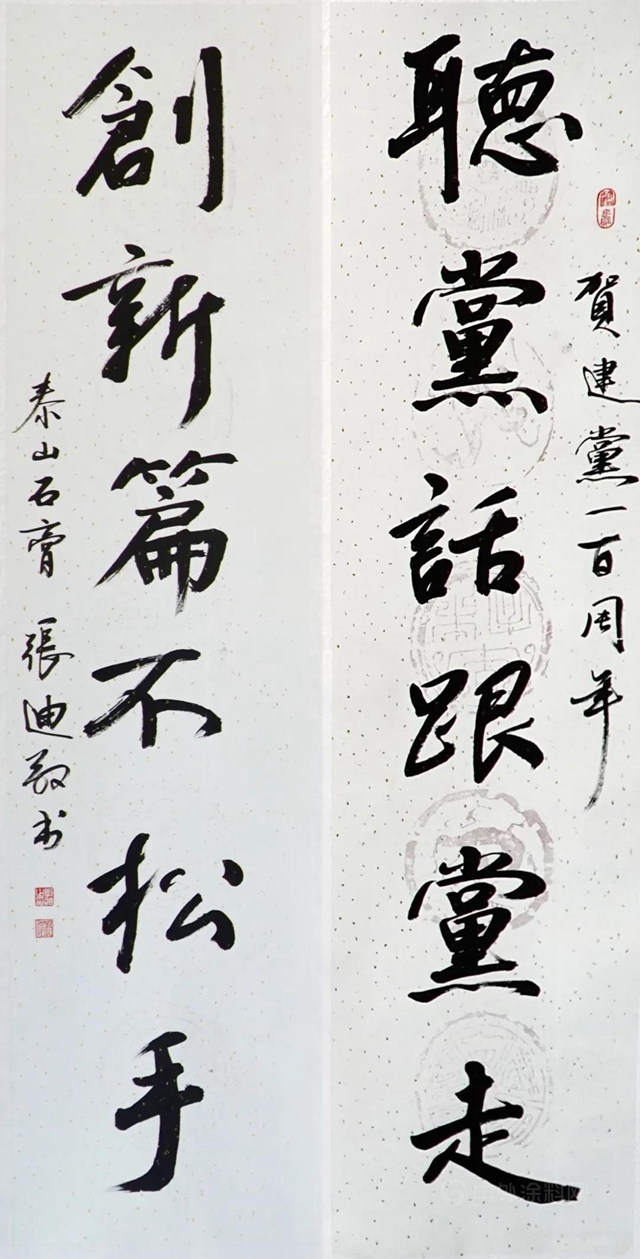 賀建黨一百周年
聽黨話跟黨走
創新篇不松手
泰山石膏 張迪毅书